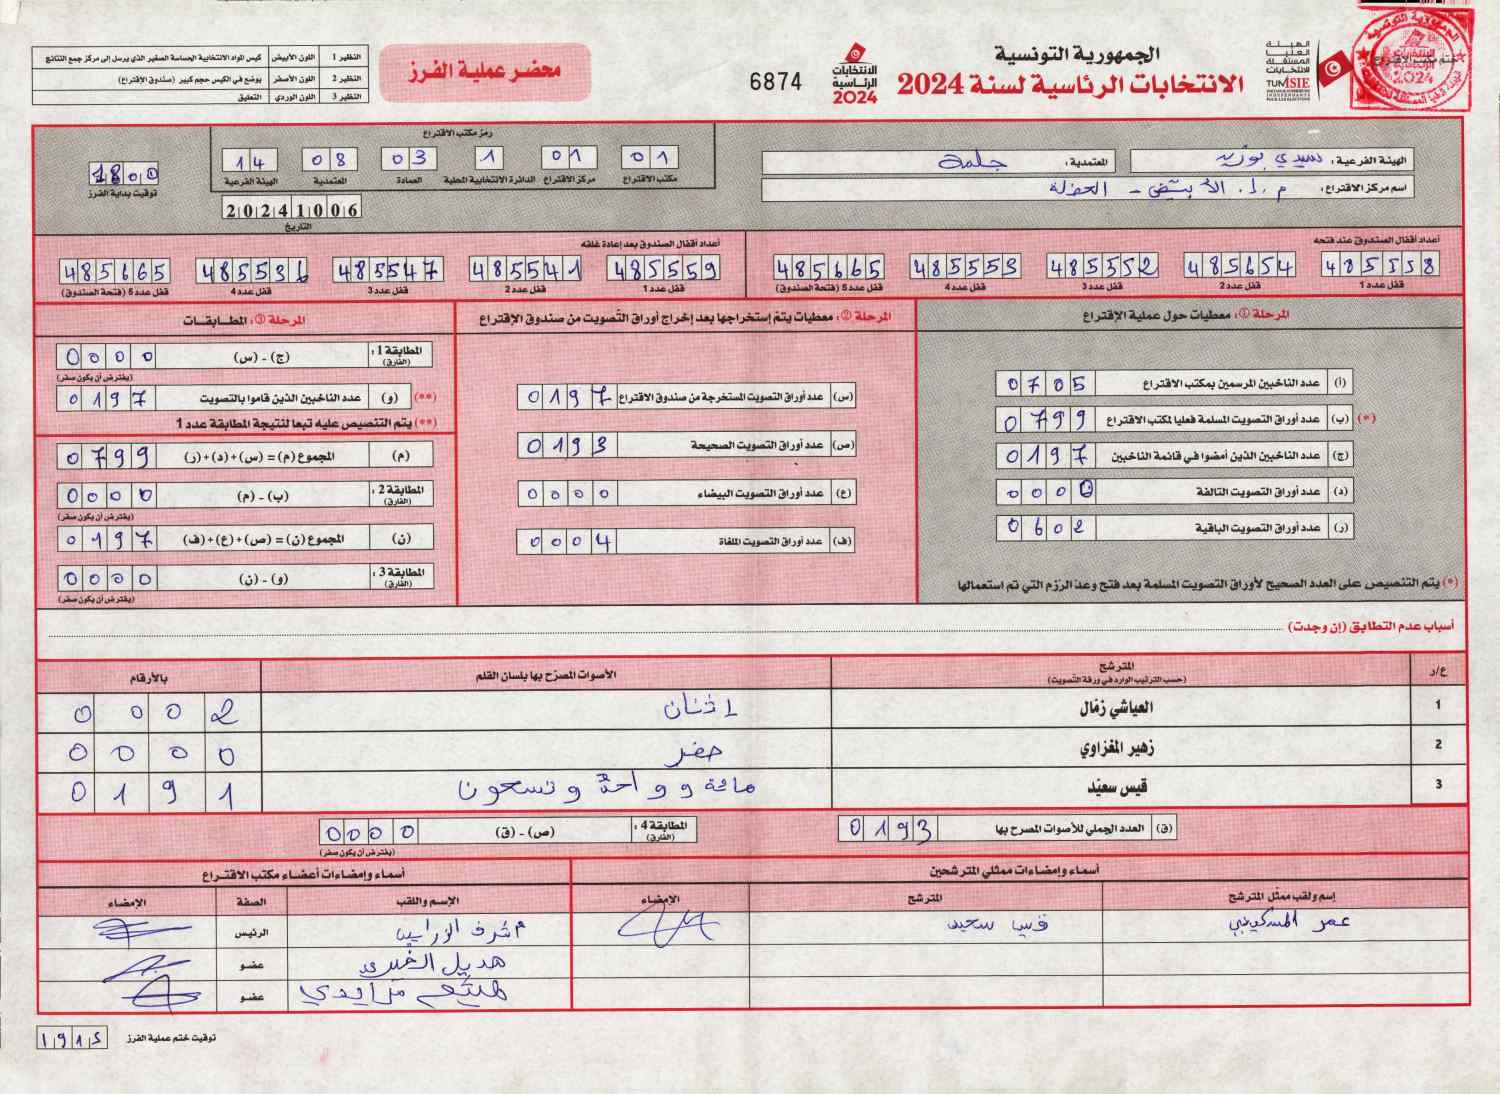 الجمهورية التونسية
الانتخابات الرئاسية لسنة 2024
الهيئة
العليا
المستقلة
للانتخابات
TUNISIE
الانتخابات
الرئاسية
2024
6874
محضر عملية الفرز
النظير 1 اللون الأبيض كيس المواد الانتخابية الحساسة الصغير الذي يرسل إلى مركز جمع النتائج
النظير 2 اللون الأصفر يوضع في الكيس حجم كبير (صندوق الاقتراع)
النظير 3 اللون الوردي التعليق
الهيئة الفرعية: سيدي بوزيد المعتمدية: جلمة
اسم مركز الاقتراع: م.إ. الأبيض - الحفلة
رمز مكتب الاقتراع
01 01 1 03 08 14
مكتب الاقتراع مركز الاقتراع الدائرة الانتخابية المحلية العمادة المعتمدية الهيئة الفرعية
20241006
التاريخ
1800
توقيت بداية الفرز
أعداد أقفال الصندوق عند فتحه
485558 485654 485552 485553 485665
قفل عدد 1 قفل عدد 2 قفل عدد 3 قفل عدد 4 قفل عدد 5 (فتحة الصندوق)
أعداد أقفال الصندوق بعد إعادة غلقه
485559 485541 485547 485536 485665
قفل عدد 1 قفل عدد 2 قفل عدد 3 قفل عدد 4 قفل عدد 5 (فتحة الصندوق)
المرحلة ①: معطيات حول عملية الإقتراع
(أ) عدد الناخبين المرسمين بمكتب الاقتراع 0705
(*) (ب) عدد أوراق التصويت المسلمة فعليا لمكتب الاقتراع 0799
(ج) عدد الناخبين الذين أمضوا في قائمة الناخبين 0197
(د) عدد أوراق التصويت التالفة 0000
(ر) عدد أوراق التصويت الباقية 0602
(*) يتم التنصيص على العدد الصحيح لأوراق التصويت المسلمة بعد فتح وعدّ الرّزم التي تم استعمالها
المرحلة ②: معطيات يتمّ إستخراجها بعد إخراج أوراق التّصويت من صندوق الإقتراع
(س) عدد أوراق التصويت المستخرجة من صندوق الاقتراع 0197
(ص) عدد أوراق التصويت الصحيحة 0193
(ع) عدد أوراق التصويت البيضاء 0000
(ف) عدد أوراق التصويت الملغاة 0004
المرحلة ③: المطابقات
المطابقة 1: (الفارق) (ج) - (س) 0000
(يفترض أن يكون صفر)
(**) (و) عدد الناخبين الذين قاموا بالتصويت 0197
(**) يتم التنصيص عليه تبعا لنتيجة المطابقة عدد 1
(م) المجموع (م) = (س)+(د)+(ر) 0799
المطابقة 2: (الفارق) (ب) - (م) 0000
(يفترض أن يكون صفر)
(ن) المجموع (ن) = (ص)+(ع)+(ف) 0197
المطابقة 3: (الفارق) (و) - (ن) 0000
(يفترض أن يكون صفر)
أسباب عدم التطابق (إن وجدت)
ع/ر المترشح الأصوات المصرّح بها بلسان القلم بالأرقام
(حسب الترتيب الوارد في ورقة التّصويت)
1 العياشي زمّال إثنان 0002
2 زهير المغزاوي صفر 0000
3 قيس سعيّد مائة و واحد و تسعون 0191
(ق) العدد الجملي للأصوات المصرح بها 0193
المطابقة 4: (الفارق) (ص) - (ق) 0000
(يفترض أن يكون صفر)
أسماء وإمضاءات ممثلي المترشحين
إسم ولقب ممثّل المترشح المترشح الإمضاء
عمر المسكيني قيس سعيد
أسماء وإمضاءات أعضاء مكتب الاقتراع
الإسم واللقب الصفة الإمضاء
أشرف الرئيس
هديل عضو
هيثم عضو
توقيت ختم عملية الفرز 1915